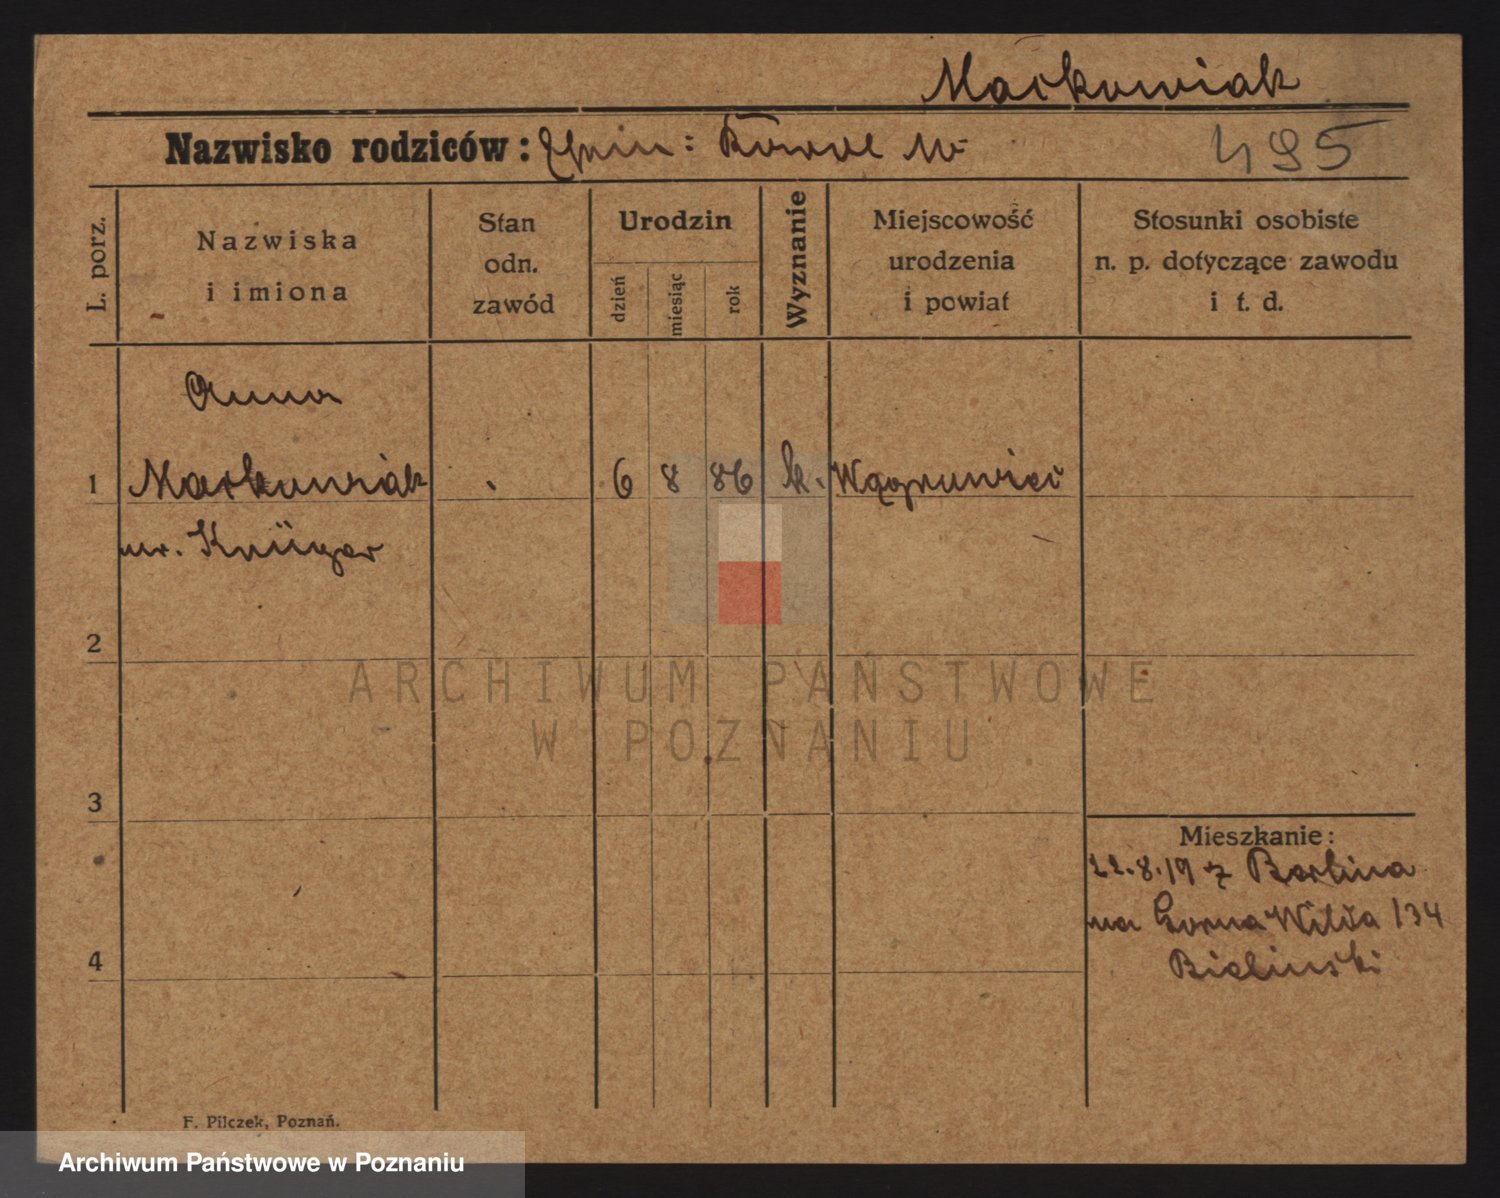 Markowiak
Nazwisko rodziców: M.
495
L. porz.
Nazwiska
i imiona
Stan
odn.
zawód
Urodzin
dzień
miesiąc
rok
Wyznanie
Miejscowość
urodzenia
i powiat
Stosunki osobiste
n. p. dotyczące zawodu
i t. d.
Anna
1 Markowiak 6 8 86 k. Wągrowiec
ur. Krüger
2
ARCHIWUM PAŃSTWOWE
W POZNANIU
3
Mieszkanie:
22.8.19 z Berlina
na Gorna Wilda 134
4
Bielinski
F. Pilczek, Poznań.
Archiwum Państwowe w Poznaniu